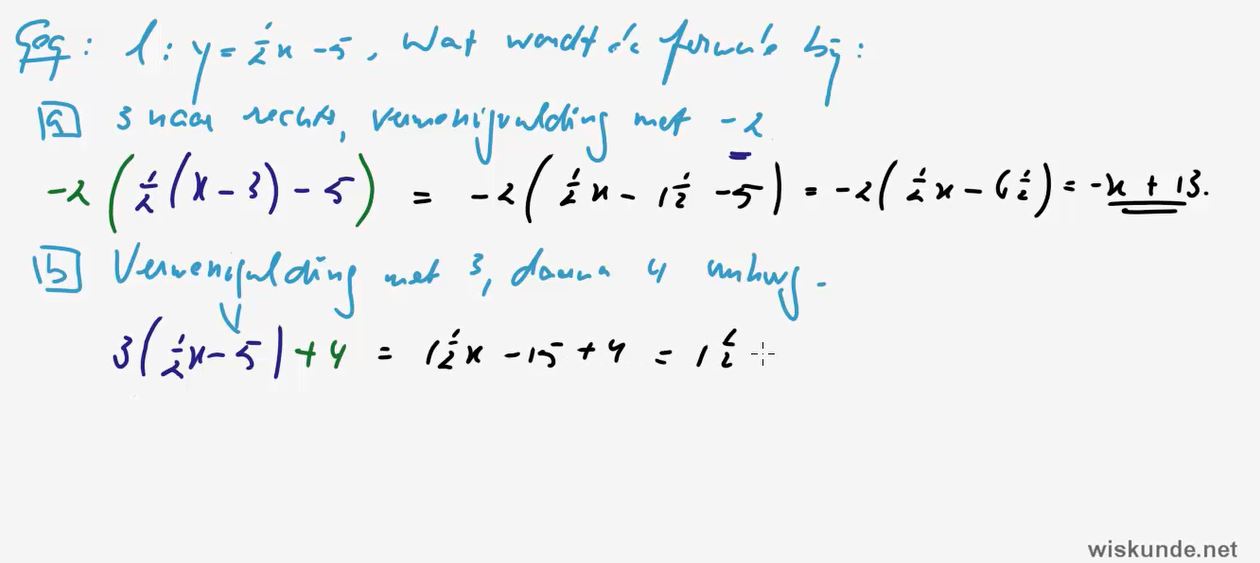 Geg: l: y = ½x - 5, Wat wordt de formule bij:
a 3 naar rechts, vermenigvuldiging met -2
-2(½(x - 3) - 5) = -2(½x - 1½ - 5) = -2(½x - 6½) = -x + 13.
b Vermenigvuldiging met 3, daarna 4 omhoog.
3(½x - 5) + 4 = 1½x - 15 + 4 = 1½
wiskunde.net